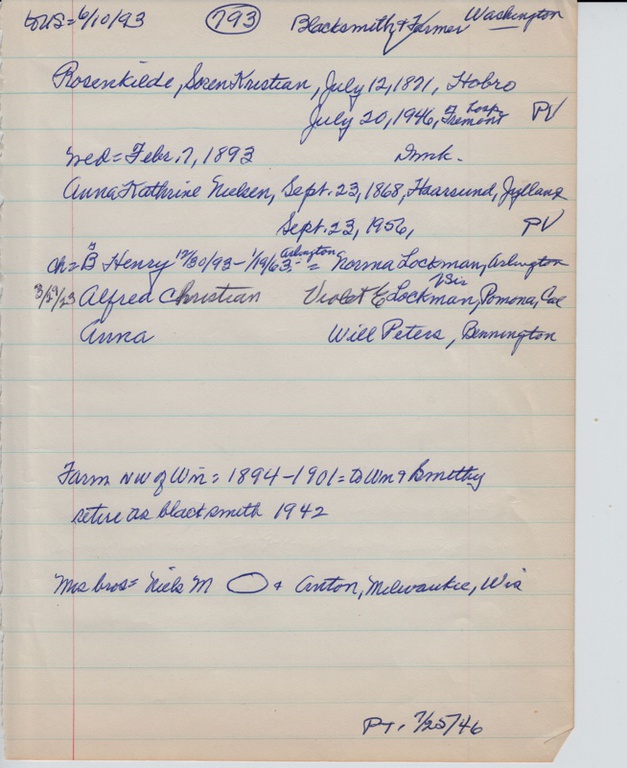 to US = 6/10/93 793 Blacksmith & Farmer Washington
Rosenkilde, Soren Kristian, July 12, 1871, Hobro
July 20, 1946, at Hosp. Fremont PV
wed = Febr. 7, 1893 Dmk.
Anna Kathrine Nielsen, Sept. 23, 1868, Haarsund, Jylland
Sept. 23, 1956, PV
ch = B Henry 12/30/93 - 1/19/63 Arlington = Norma Lockman, Arlington
3/29/23 Alfred Christian Violet E Lockman, Pomona, Cal
Anna Will Peters, Bennington
Farm NW of Wn = 1894-1901 = to Wn & Bsmithy
retire as blacksmith 1942
Mrs bros = Niels M & Anton, Milwaukee, Wis
PT. 7/25/46